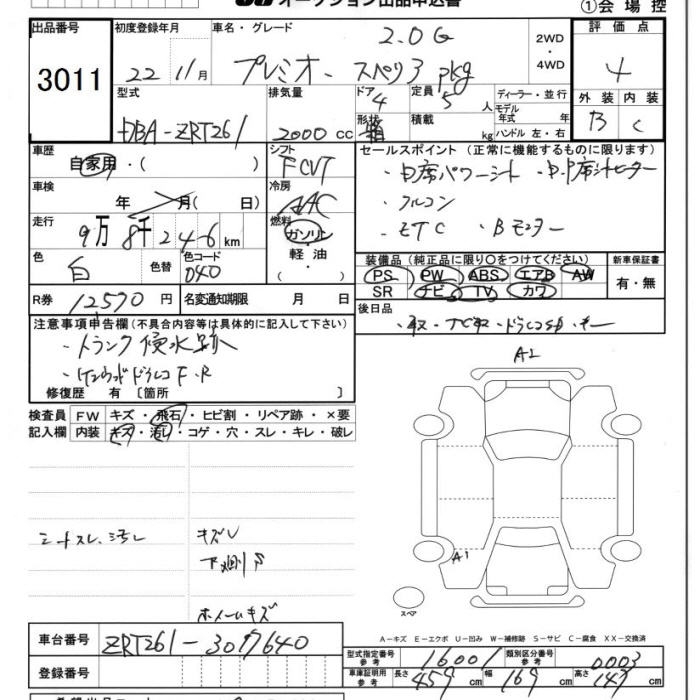 オークション出品申込書 ①会場控
出品番号 初度登録年月 車名・グレード 評価点
3011 22 11月 プレミオ 2.0G スペリ3 pkg 2WD・4WD 4
型式 排気量 ドア 定員 ディーラー・並行 外装 内装
DBA-ZRT261 2000cc 4 5人 モデル年式 年 B C
形状 箱 積載 kg ハンドル 左・右
車歴 シフト セールスポイント (正常に機能するものに限ります)
自家用・( ) FCVT
車検 冷房
年 月( 日) AAC ・フルコン
走行 燃料 ・ETC ・Bモニター
9万8千246km ガソリン・軽油・
色 色替 色コード 装備品 (純正品に限り○をつけてください) 新車保証書
白 040 PS PW ABS エアB AW 有・無
SR ナビ TV カワ
R券 12570円 名変通知期限 月 日 後日品
注意事項申告欄 (不具合内容等は具体的に記入して下さい)
・トランク浸水跡 A2
ドラレコ F・R
修復歴 有 [箇所 ]
検査員 FW キズ・飛石・ヒビ割・リペア跡・×要
記入欄 内装 キズ・汚れ・コゲ・穴・スレ・キレ・破レ
シートスレ、汚レ キズU
A1
ホイールキズ スペア
A-キズ E-エクボ U-凹み W-補修跡 S-サビ C-腐食 XX-交換済
車台番号 ZRT261-3077640
型式指定番号 参考 16001 類別区分番号 参考 0003
登録番号 車庫証明用 参考 長さ 459cm 幅 169cm 高さ 147cm